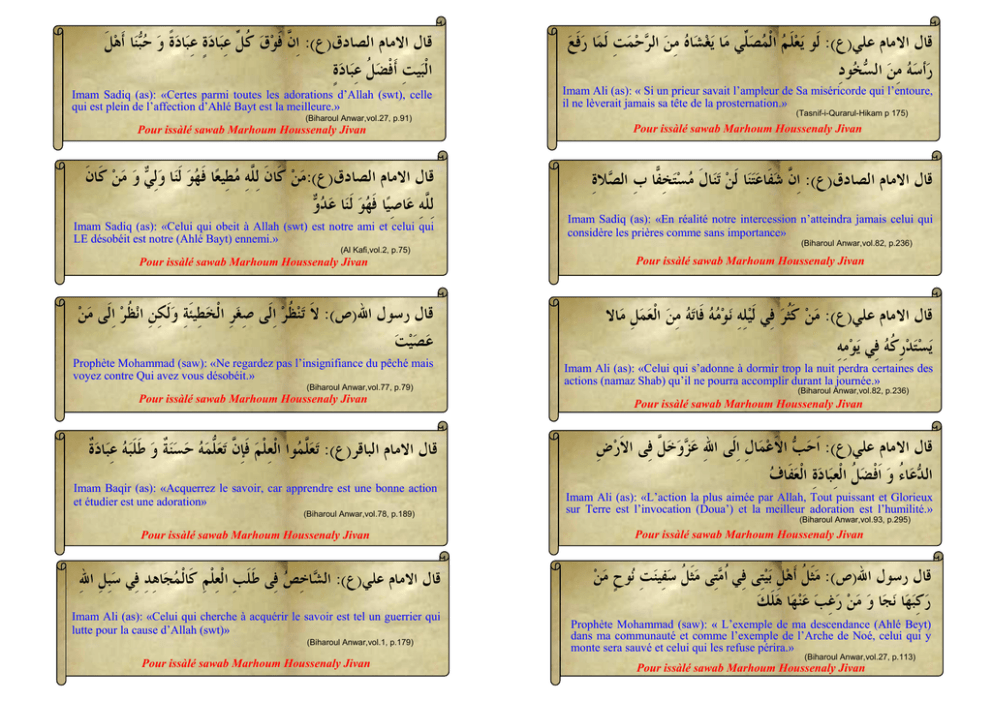 قال الامام الصادق(ع): اِنَّ فَوْقَ كُلِّ عِبَادَةٍ عِبَادَةً وَ حُبُّنَا أَهْلَ
الْبَيتِ أَفْضَلُ عِبَادَةٍ
Imam Sadiq (as): «Certes parmi toutes les adorations d’Allah (swt), celle
qui est plein de l’affection d’Ahlé Bayt est la meilleure.»
(Biharoul Anwar,vol.27, p.91)
Pour issàlé sawab Marhoum Houssenaly Jivan
قال الامام الصادق(ع):مَنْ كَانَ لِلَّهِ مُطِيعًا فَهُوَ لَنَا وَلِيٌّ وَ مَنْ كَانَ
لِلَّهِ عَاصِيًا فَهُوَ لَنَا عَدُوٌّ
Imam Sadiq (as): «Celui qui obeit à Allah (swt) est notre ami et celui qui
LE désobéit est notre (Ahlé Bayt) ennemi.»
(Al Kafi,vol.2, p.75)
Pour issàlé sawab Marhoum Houssenaly Jivan
قال رسول الله(ص): لاَ تَنْظُرْ اِلَى صِغَرِ الْخَطِيئَةِ وَلَكِنِ انْظُرْ اِلَى مَنْ
عَصَيْتَ
Prophète Mohammad (saw): «Ne regardez pas l’insignifiance du pêché mais
voyez contre Qui avez vous désobéit.»
(Biharoul Anwar,vol.77, p.79)
Pour issàlé sawab Marhoum Houssenaly Jivan
قال الامام الباقر(ع): تَعَلَّمُوا الْعِلْمَ فَإِنَّ تَعَلُّمَهُ حَسَنَةٌ وَ طَلَبَهُ عِبَادَةٌ
Imam Baqir (as): «Acquerrez le savoir, car apprendre est une bonne action
et étudier est une adoration»
(Biharoul Anwar,vol.78, p.189)
Pour issàlé sawab Marhoum Houssenaly Jivan
قال الامام علي(ع): الشَّاخِصُ فِى طَلَبِ الْعِلْمِ كَالْمُجَاهِدِ فِي سَبِلِ اللهِ
Imam Ali (as): «Celui qui cherche à acquérir le savoir est tel un guerrier qui
lutte pour la cause d’Allah (swt)»
(Biharoul Anwar,vol.1, p.179)
Pour issàlé sawab Marhoum Houssenaly Jivan
قال الامام علي(ع): لَو يَعْلَمُ الْمُصَلِّي مَا يَغْشَاهُ مِنَ الرَّحْمَتِ لَمَا رَفَعَ
رَأسَهُ مِنَ السُّجُود
Imam Ali (as): « Si un prieur savait l’ampleur de Sa miséricorde qui l’entoure,
il ne lèverait jamais sa tête de la prosternation.»
(Tasnif-i-Qurarul-Hikam p 175)
Pour issàlé sawab Marhoum Houssenaly Jivan
قال الامام الصادق(ع): اِنَّ شَفَاعَتَنَا لَنْ تَنَالَ مُسْتَخِفًّا بِ الصَّلاةِ
Imam Sadiq (as): «En réalité notre intercession n’atteindra jamais celui qui
considère les prières comme sans importance»
(Biharoul Anwar,vol.82, p.236)
Pour issàlé sawab Marhoum Houssenaly Jivan
قال الامام علي(ع): مَنْ كَثُرَ فِي لَيْلِهِ نَوْمُهُ فَاتَهُ مِنَ الْعَمَلِ مَالا
يَسْتَدْرِكُهُ فِي يَوْمِهِ
Imam Ali (as): «Celui qui s’adonne à dormir trop la nuit perdra certaines des
actions (namaz Shab) qu’il ne pourra accomplir durant la journée.»
(Biharoul Anwar,vol.82, p.236)
Pour issàlé sawab Marhoum Houssenaly Jivan
قال الامام علي(ع): اَحَبُّ الاَعْمَالِ اِلَى اللهِ عَزَّوَجَلَّ فِى الاَرْضِ
الدُّعَاءُ وَ اَفْضَلُ الْعِبَادَةِ الْعَفَافُ
Imam Ali (as): «L’action la plus aimée par Allah, Tout puissant et Glorieux
sur Terre est l’invocation (Doua’) et la meilleur adoration est l’humilité.»
(Biharoul Anwar,vol.93, p.295)
Pour issàlé sawab Marhoum Houssenaly Jivan
قال رسول الله(ص): مَثَلُ أَهْلِ بَيْتِى فِي اُمَّتِى مَثَلُ سَفِينَتِ نُوحٍ مَنْ
رَكِبَهَا نَجَا وَ مَنْ رَغِبَ عَنْهَا هَلَكَ
Prophète Mohammad (saw): « L’exemple de ma descendance (Ahlé Beyt)
dans ma communauté et comme l’exemple de l’Arche de Noé, celui qui y
monte sera sauvé et celui qui les refuse périra.»
(Biharoul Anwar,vol.27, p.113)
Pour issàlé sawab Marhoum Houssenaly Jivan